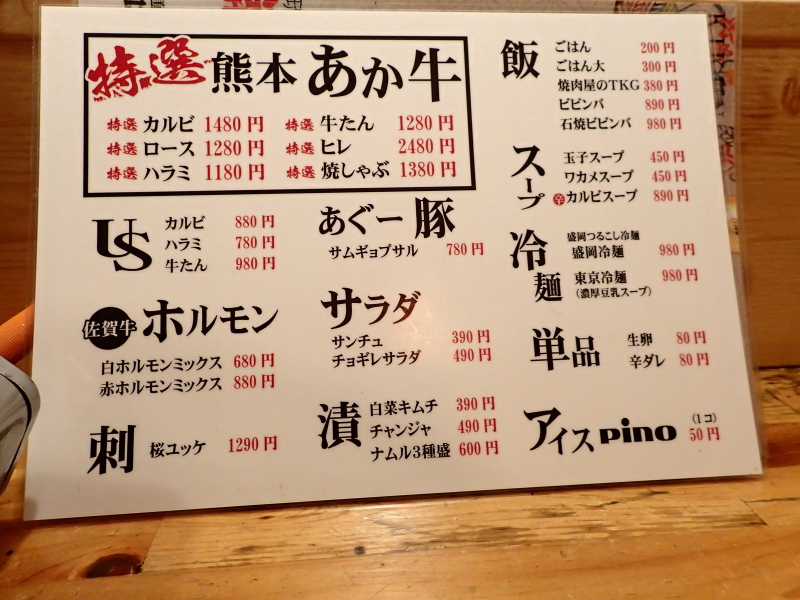 特選 熊本 あか牛
特選 カルビ 1480円 特選 牛たん 1280円
特選 ロース 1280円 特選 ヒレ 2480円
特選 ハラミ 1180円 特選 焼しゃぶ 1380円
US
カルビ 880円
ハラミ 780円
牛たん 980円
あぐー豚
サムギョプサル 780円
佐賀牛 ホルモン
白ホルモンミックス 680円
赤ホルモンミックス 880円
サラダ
サンチュ 390円
チョギレサラダ 490円
刺
桜ユッケ 1290円
漬
白菜キムチ 390円
チャンジャ 490円
ナムル3種盛 600円
飯
ごはん 200円
ごはん大 300円
焼肉屋のTKG 380円
ビビンバ 890円
石焼ビビンバ 980円
スープ
玉子スープ 450円
ワカメスープ 450円
辛 カルビスープ 890円
冷麺
盛岡つるこし冷麺
盛岡冷麺 980円
東京冷麺 980円
(濃厚豆乳スープ)
単品
生卵 80円
辛ダレ 80円
アイス pino (1コ) 50円